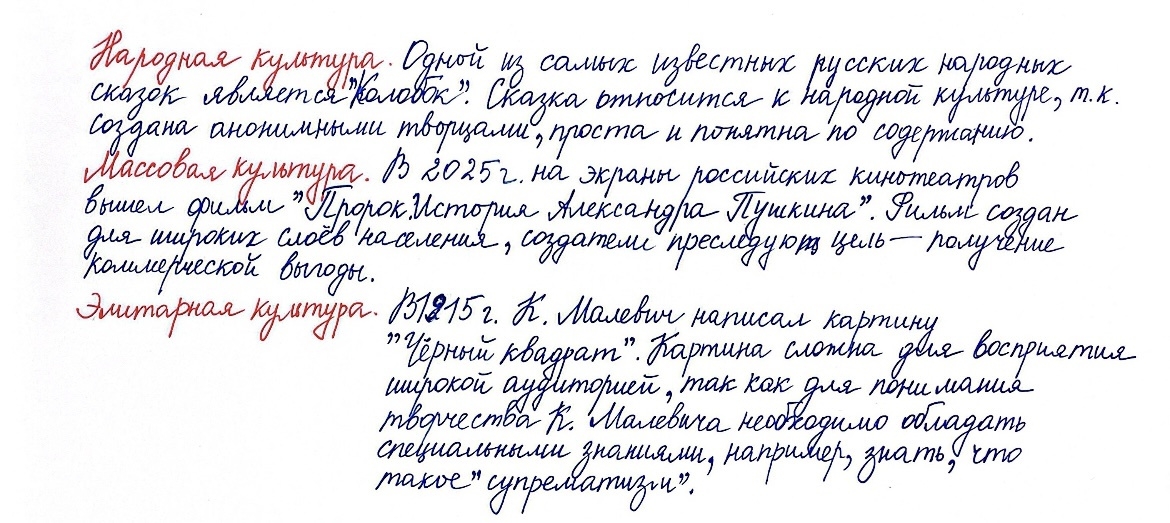 Народная культура. Одной из самых известных русских народных
сказок является "Колобок". Сказка относится к народной культуре, т.к.
создана анонимными творцами, проста и понятна по содержанию.
Массовая культура. В 2025 г. на экраны российских кинотеатров
вышел фильм "Пророк. История Александра Пушкина". Фильм создан
для широких слоёв населения, создатели преследуют цель — получение
коммерческой выгоды.
Элитарная культура. В 1915 г. К. Малевич написал картину
"Чёрный квадрат". Картина сложна для восприятия
широкой аудиторией, так как для понимания
творчества К. Малевича необходимо обладать
специальными знаниями, например, знать, что
такое "супрематизм".